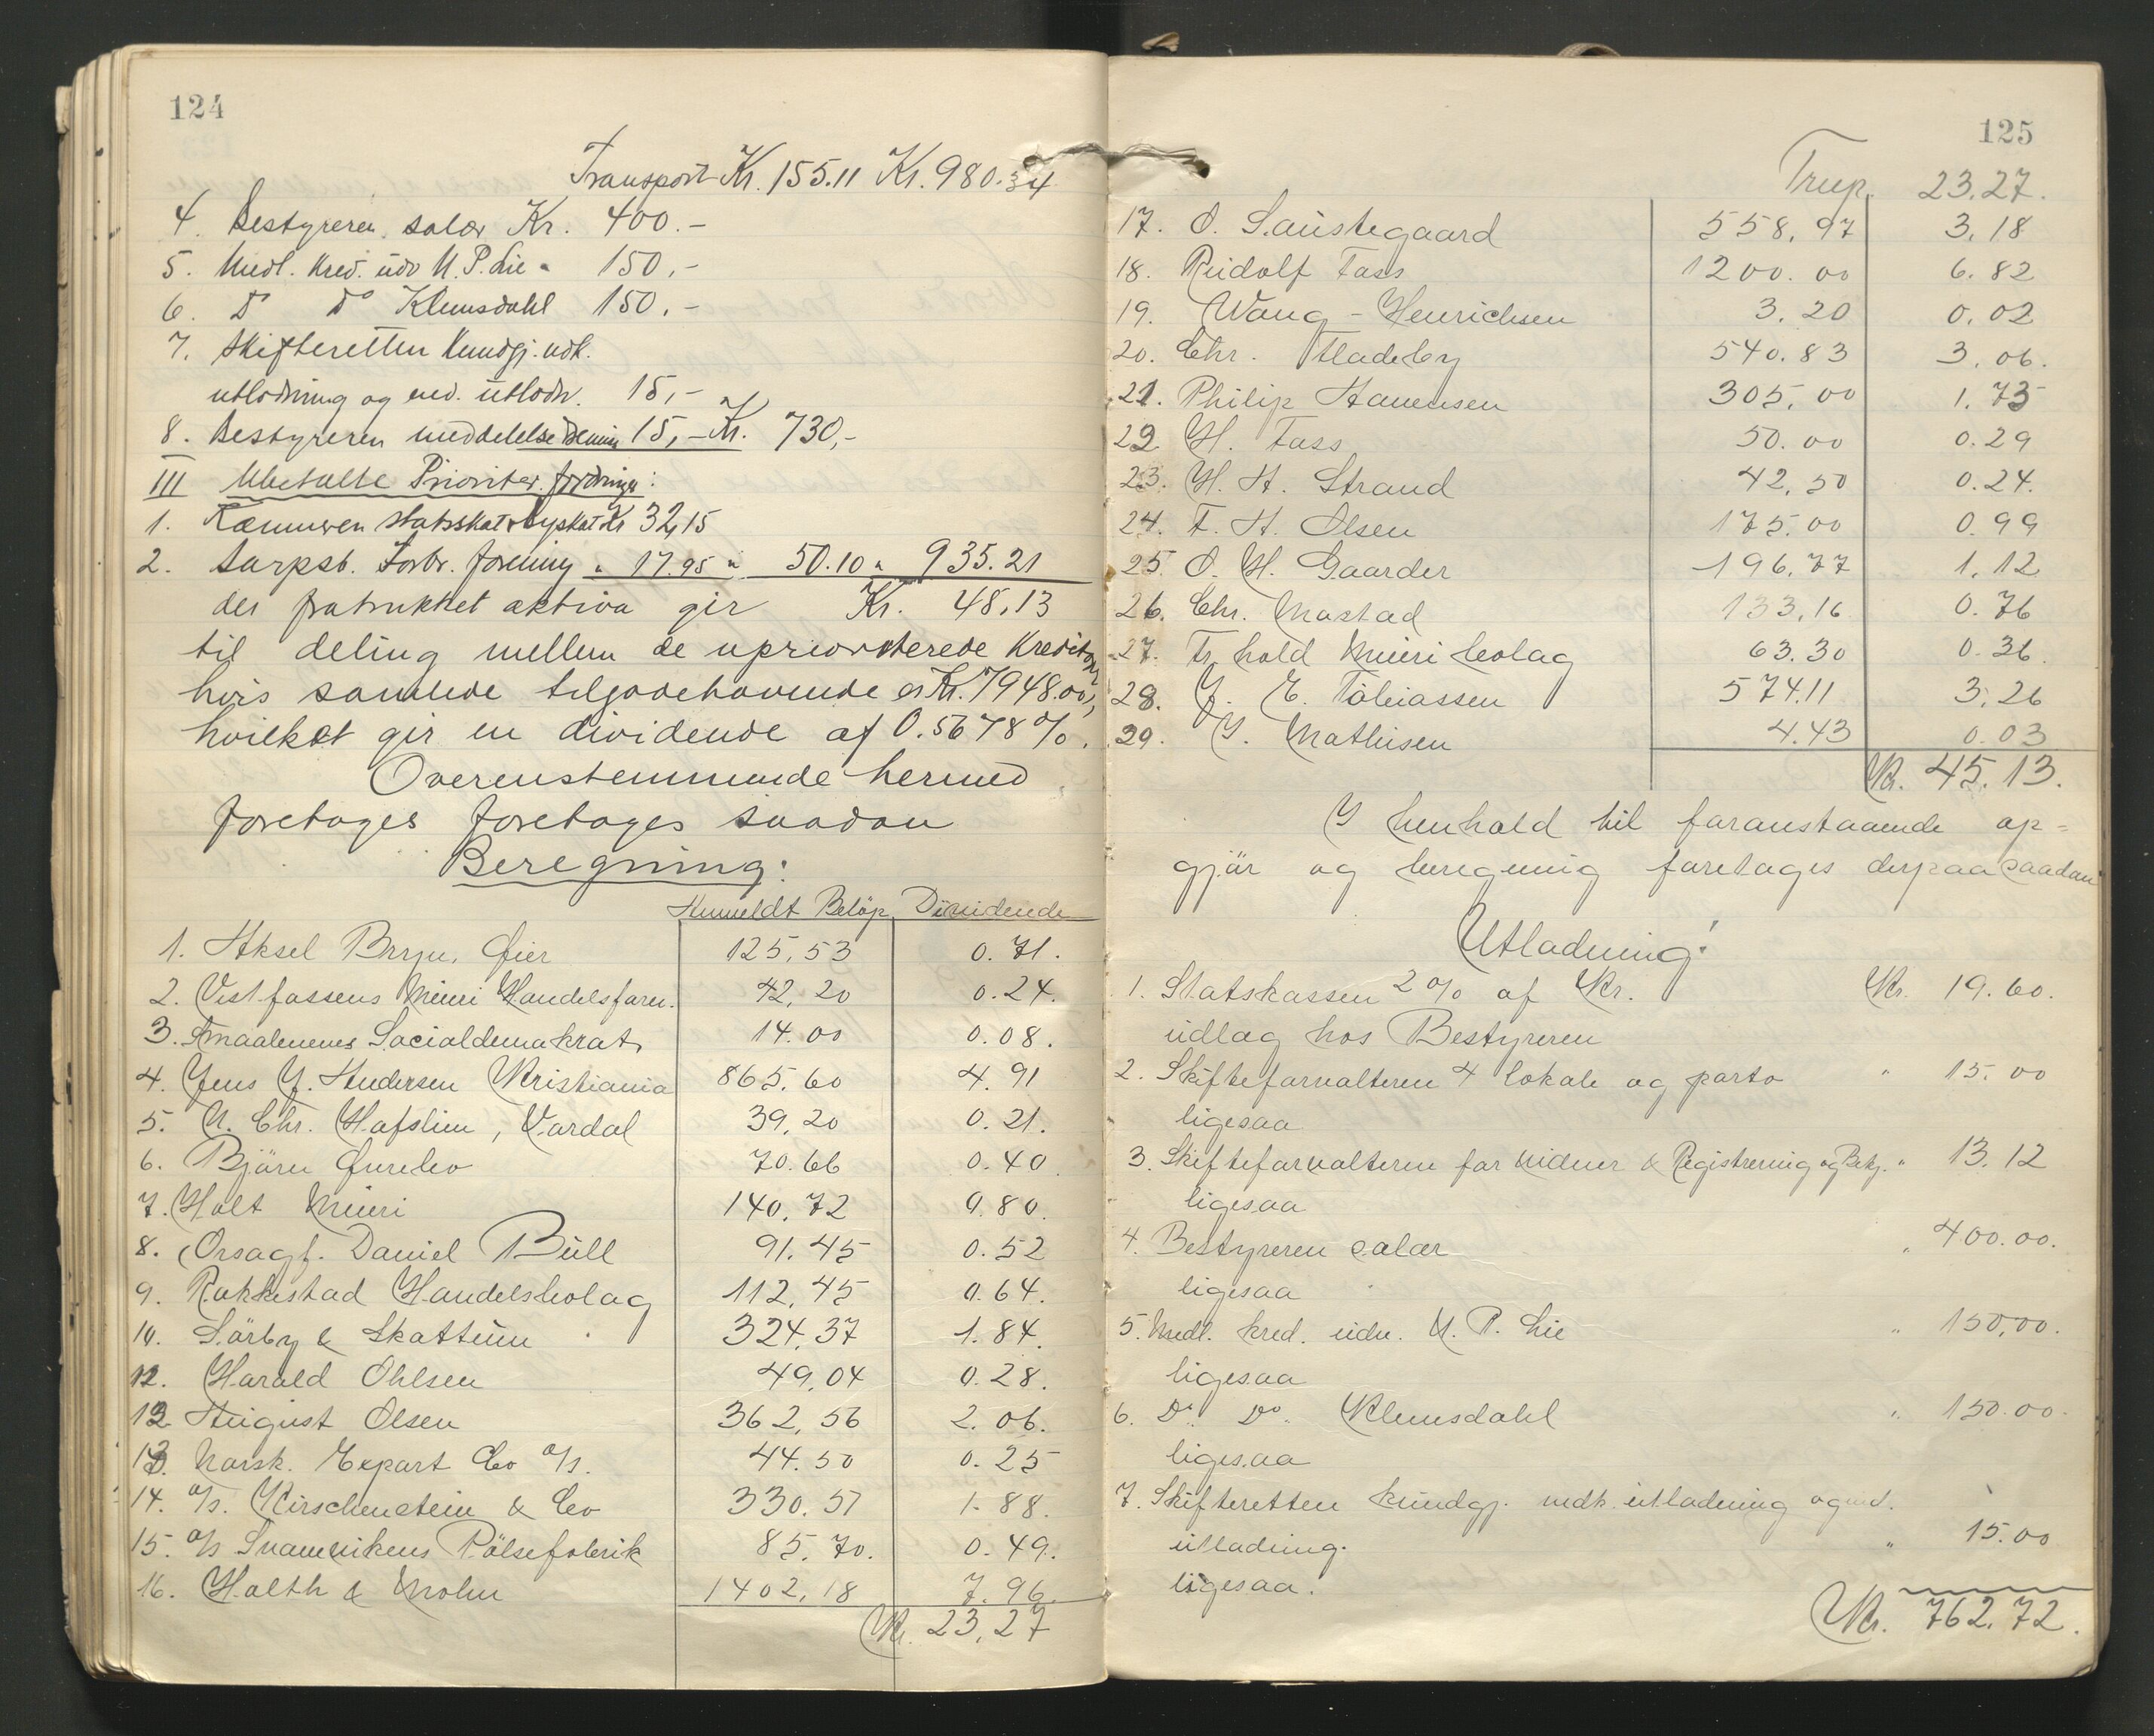 124
Transport Kr. 155.11 Kr. 980.34
4. Bestyreren salær Kr. 400.-
5. Medl. kred. udv N. P. Lie " 150,-
6. Do Do Klemsdahl 150.-
7. Skifteretten kundgj. indk.
utlodning og end. utlodn. 15,-
8. Bestyreren meddelelse 15,- Kr. 730,-
III Ubetalte Prioriter. fordringer:
1. Kæmneren statsskat & byskat Kr 32,15
2. Sarpsb. Forbr. forening " 17.95 " 50.10 " 935.21
der fratrukket aktiva gir Kr. 48,13
til deling mellem de uprioriterede kreditorer
hvis samlede tilgodehavende er Kr. 7948.00,
hvilket gir en dividende af 0.5678 %.
Overenstemmende hermed
foretages foretages saadan
Beregning:
Anmeldt Beløp Dividende
1. Aksel Bryn, Øier 125,53 0.71.
2. Vestfossens Meieri Handelsforr. 42,20 0.24.
3. Smaalenenes Socialdemokrat, 14.00 0.08.
4. Jens J. Andersen Kristiania 865.60 4.91
5. N. Chr. Hafslien, Vardal 39,20 0.21.
6. Bjärn Furebo 70.66 0.40
7. Holt Meieri 140.72 0.80.
8. Orsagf. Daniel Büll 91.45 0.52
9. Rakkestad Handelsbolag 112,45 0.64.
10. Sörby & Skattum 324,37 1.84.
12. Harald Ohlsen 49,04 0.28.
12 August Olsen 362,56 2.06.
13. Norsk. Export Co a/s. 44.50 0.25
14. a/s. Kirschenstein & Co 330.57 1.88.
15. a/s Svanevikens Pölsefabrik 85.70. 0.49.
16. Holth & Mohn 1402,18 7.96.
Kr. 23,27
125
Trsp. 23.27.
17. O. Saustegaard 558,97 3.18
18. Rudolf Fass 1200.00 6.82
19. Wang-Henrichsen 3.20 0.02
20. Chr. Fladeby 540.83 3.06.
21. Philip Hanensen 305,00 1.73
22. H. Fass 50.00 0.29
23. H. A. Strand 42,50 0.24.
24. F. H. Olsen 175.00 0.99
25 O. H. Gaarder 196,77 1.12
26. Chr. Mastad 133,16 0.76
27. Tr hold Meieri bolag 63.30 0.36.
28. J. E. Tobiassen 574.11 3.26
29. J. Mathisen 4.43 0.03
Kr. 45.13.
I henhold til foranstaaende op=
gjör og beregning foretages derpaa saadan
Utlodning:
1. Statskassen 2% af Kr. Kr. 19.60.
udlag hos Bestyreren
2. Skifteforvalteren 4 lokale og porto " 15.00
ligesaa
3. Skifteforvalteren for vidner & Registrering og Bekj. " 13.12
ligesaa
4. Bestyreren salær " 400.00.
ligesaa
5. Medl. kred. udv. N. P. Lie " 150,00.
ligesaa
6. Do. Do. Klemsdahl " 150.00.
ligesaa
7. Skifteretten kundgj. indk. utlodning og end.
utlodning. " 15.00
ligesaa.
Kr. 762.72.